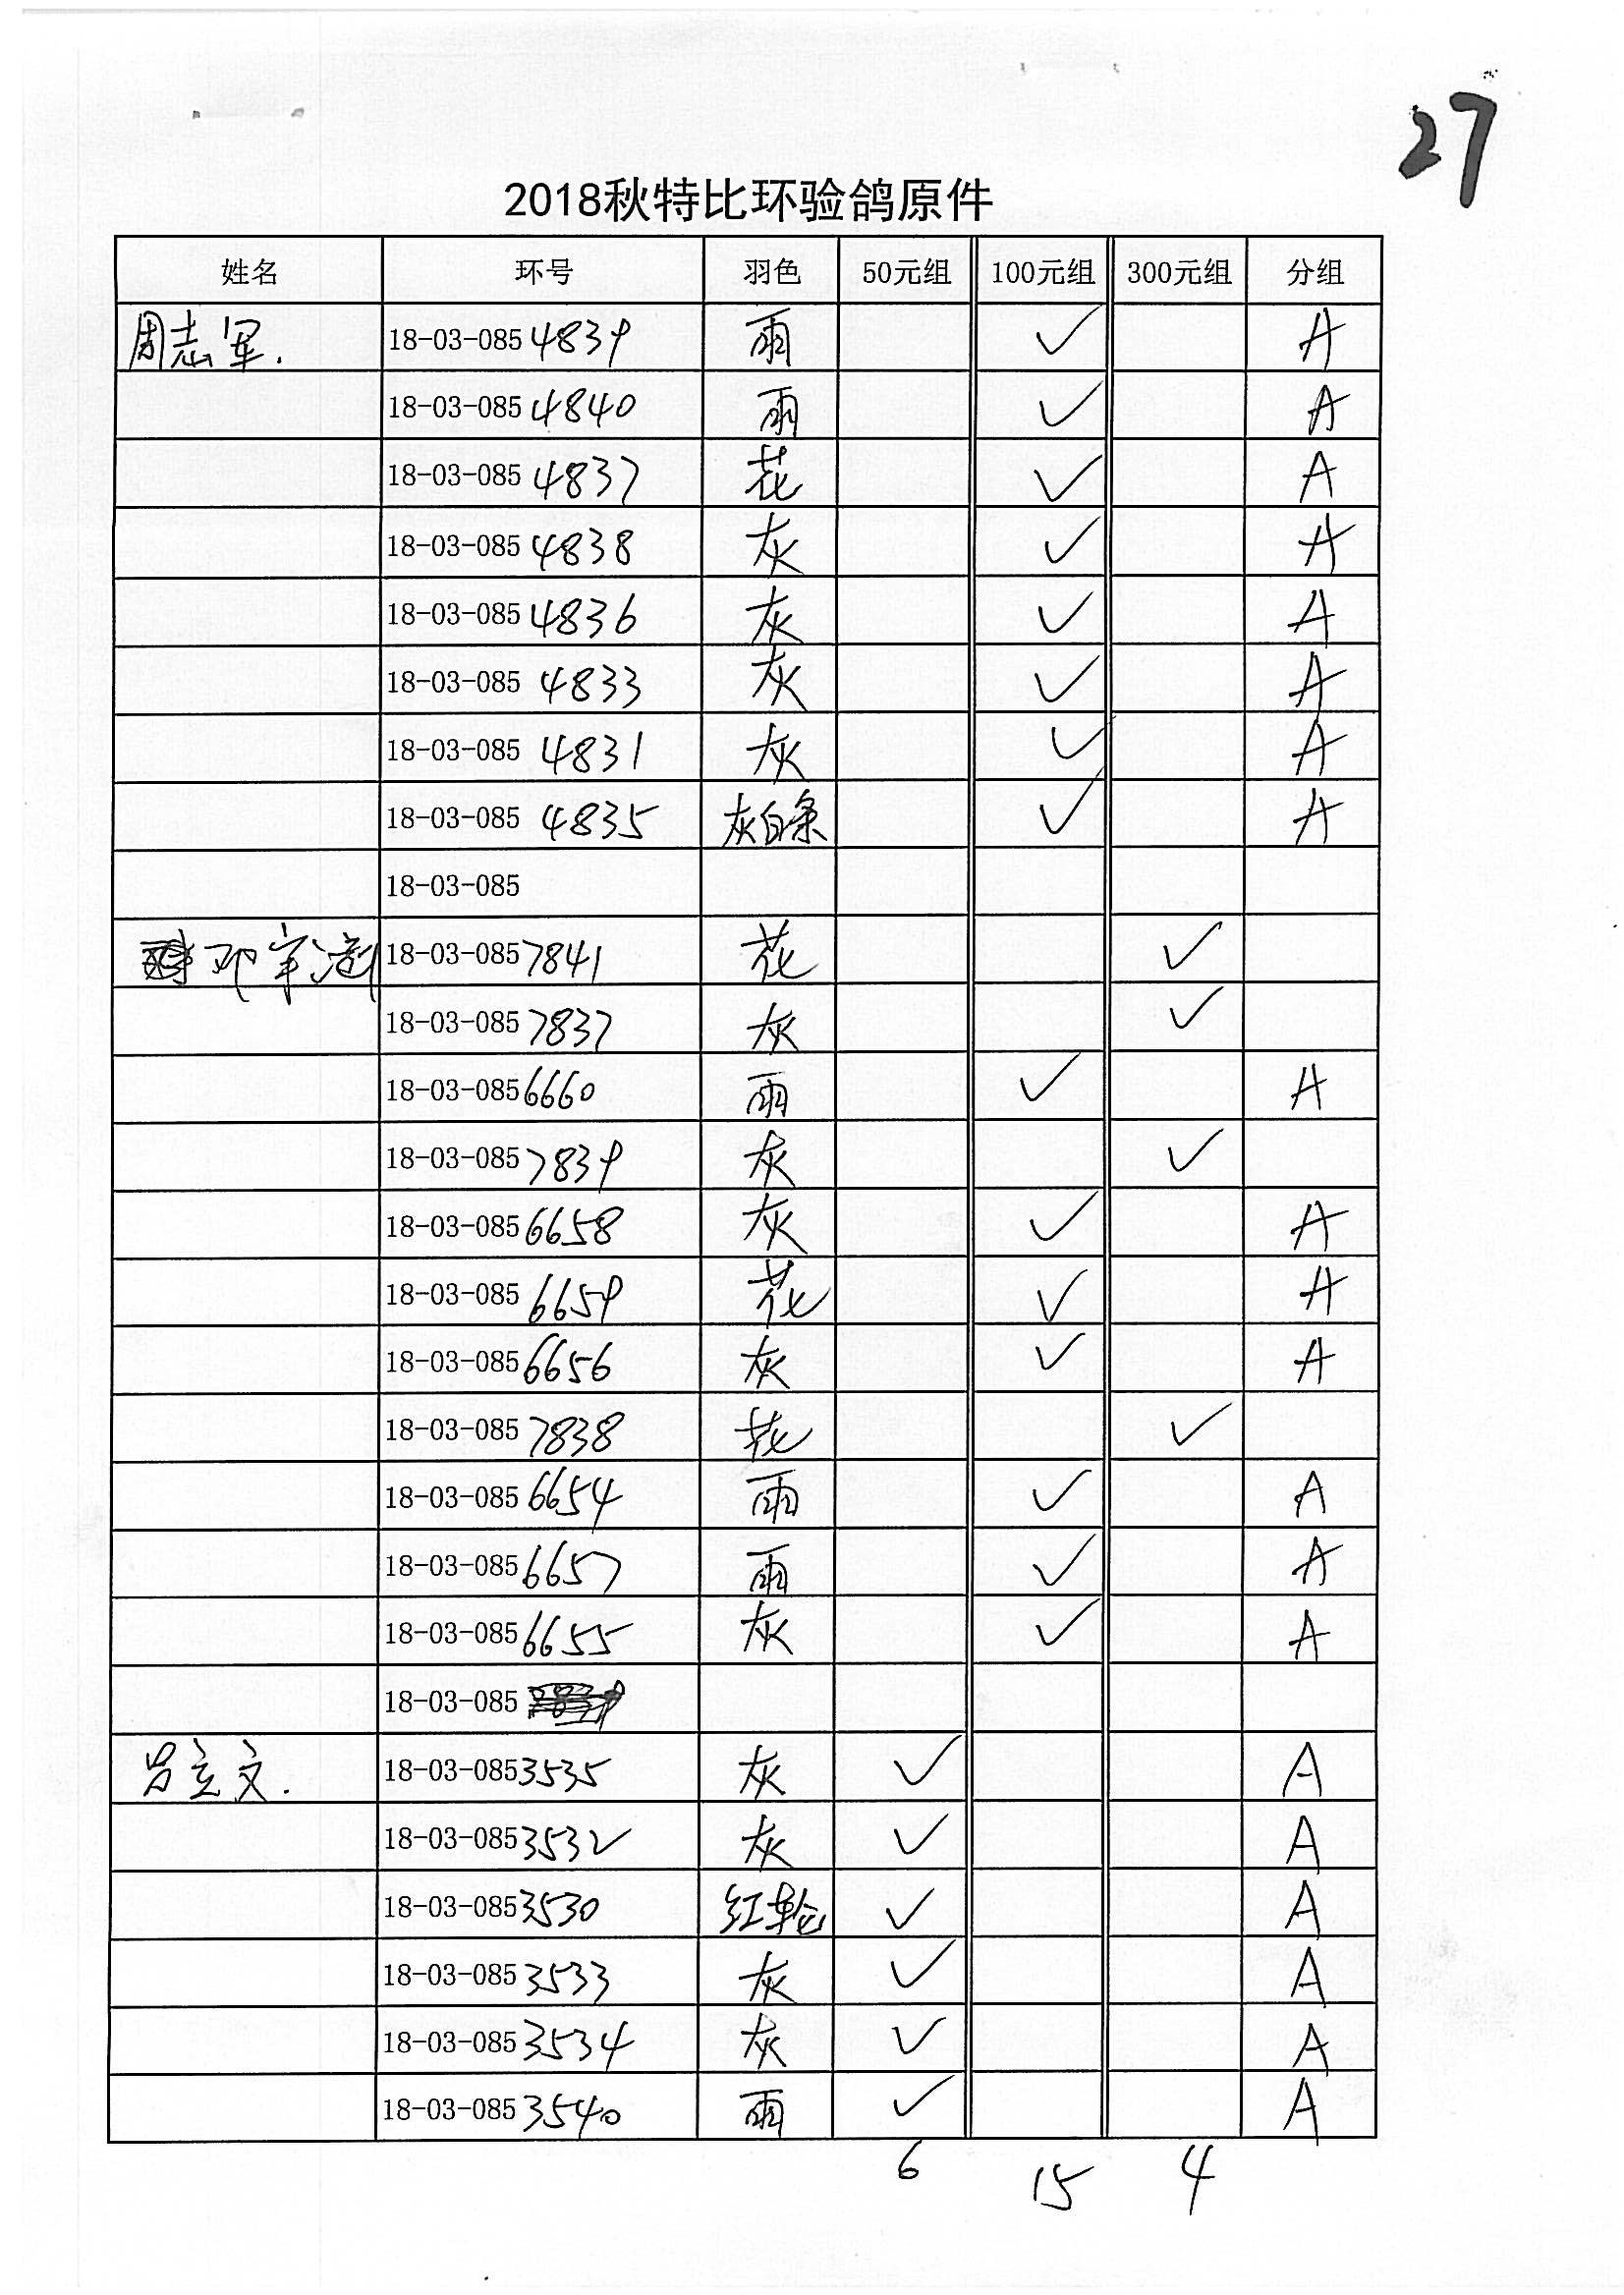 27
2018秋特比环验鸽原件
姓名 环号 羽色 50元组 100元组 300元组 分组
周志军. 18-03-085 4839 雨 ✓ A
18-03-085 4840 雨 ✓ A
18-03-085 4837 花 ✓ A
18-03-085 4838 灰 ✓ A
18-03-085 4836 灰 ✓ A
18-03-085 4833 灰 ✓ A
18-03-085 4831 灰 ✓ A
18-03-085 4835 灰白条 ✓ A
18-03-085
邓宇 18-03-085 7841 花 ✓
18-03-085 7837 灰 ✓
18-03-085 6660 雨 ✓ A
18-03-085 7839 灰 ✓
18-03-085 6658 灰 ✓ A
18-03-085 6659 花 ✓ A
18-03-085 6656 灰 ✓ A
18-03-085 7838 花 ✓
18-03-085 6654 雨 ✓ A
18-03-085 6657 雨 ✓ A
18-03-085 6655 灰 ✓ A
18-03-085
吕立文. 18-03-085 3535 灰 ✓ A
18-03-085 3532 灰 ✓ A
18-03-085 3530 红轮 ✓ A
18-03-085 3533 灰 ✓ A
18-03-085 3534 灰 ✓ A
18-03-085 3540 雨 ✓ A
6 15 4